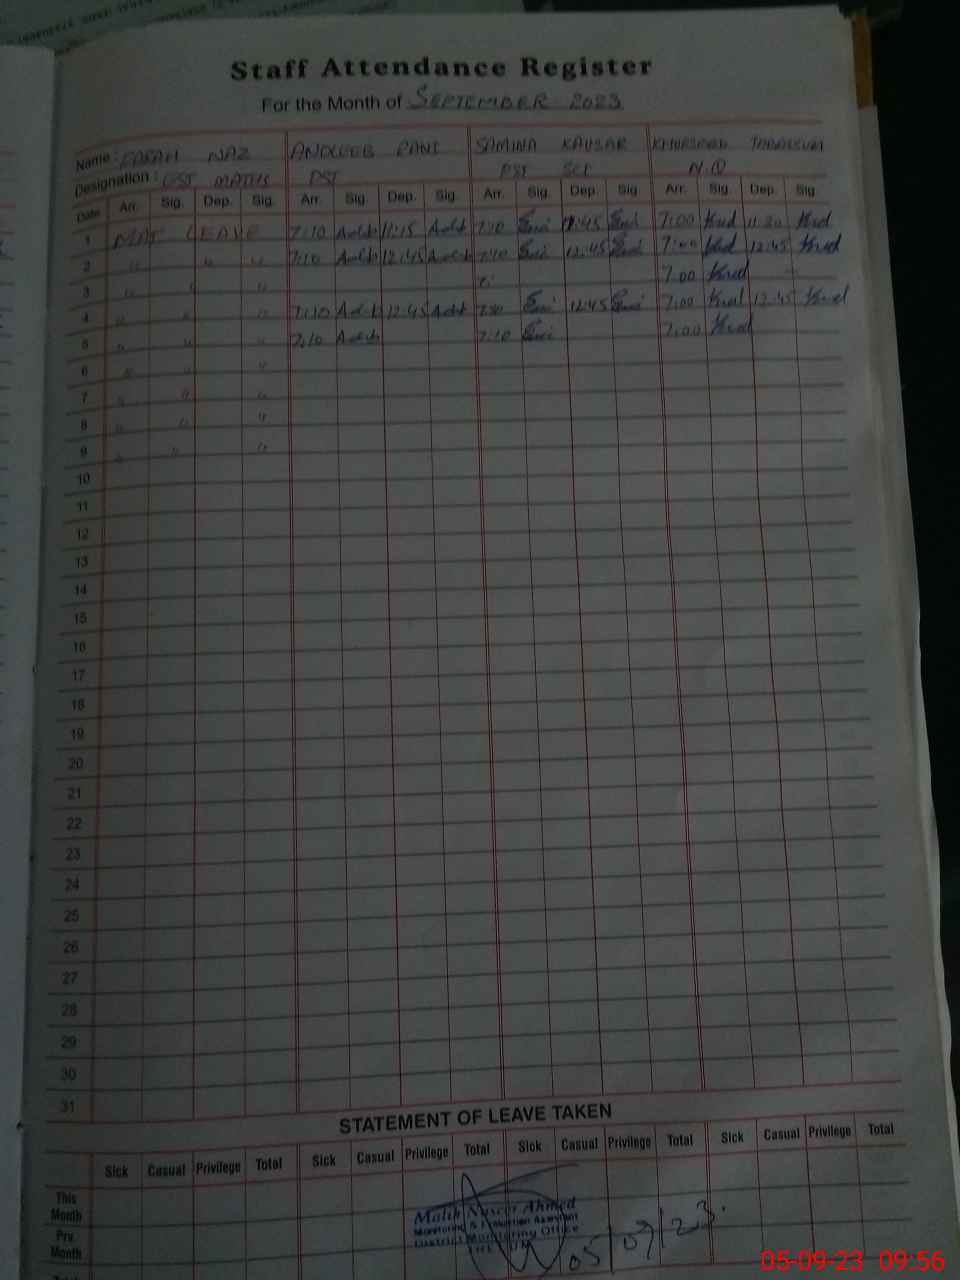 Staff Attendance Register
For the Month of SEPTEMBER 2023
Name : FARAH NAZ ANDLEEB RANI SAMINA KAUSAR KHURSEED TABASSUM
Designation : EST MATHS PST PST SCI N.Q
Date Arr. Sig. Dep. Sig. Arr. Sig. Dep. Sig. Arr. Sig. Dep. Sig. Arr. Sig. Dep. Sig.
1 MAT LEAVE 7:10 11:15 7:10 12:45 7:00 11:30
2 " " " 7:10 12:45 7:10 12:45 7:00 12:45
3 " " " 7: 7:00
4 " " " 7:10 12:45 7:10 12:45 7:00 12:45
5 " " " 7:10 7:10 7:00
6 " " "
7 " " "
8 " " "
9 " " "
10
11
12
13
14
15
16
17
18
19
20
21
22
23
24
25
26
27
28
29
30
31
STATEMENT OF LEAVE TAKEN
Sick Casual Privilege Total Sick Casual Privilege Total Sick Casual Privilege Total Sick Casual Privilege Total
This Month
Prv. Month
Malik Naseer Ahmed
Monitoring & Evaluation Assistant
District Monitoring Office
05/09/23
05-09-23 09:56